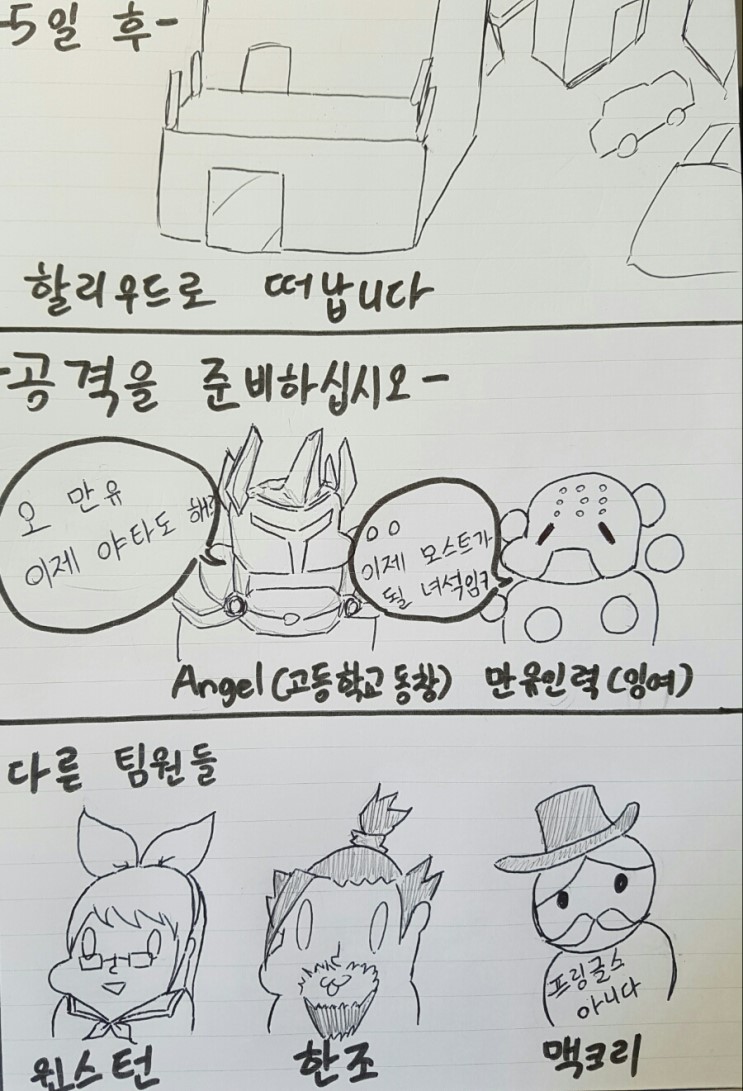 -5일 후-
할리우드로 떠납니다
-공격을 준비하십시오-
오 만유
이제 야타도 해?
ㅇㅇ
이제 모스트가
될 녀석임ㅋ
Angel(고등학교 동창) 만유인력(잉여)
다른 팀원들
프링글스
아니다
윈스턴 한조 맥크리